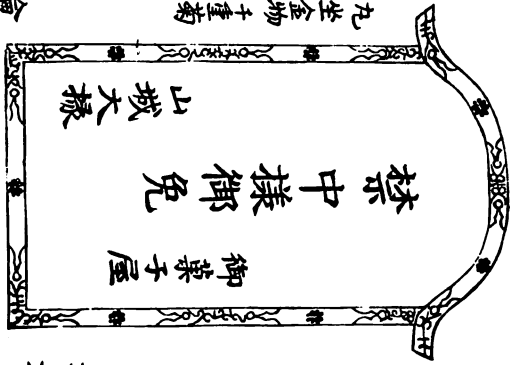 御菓子屋
禁中様御免
山城大掾
丸坐金物千重菊